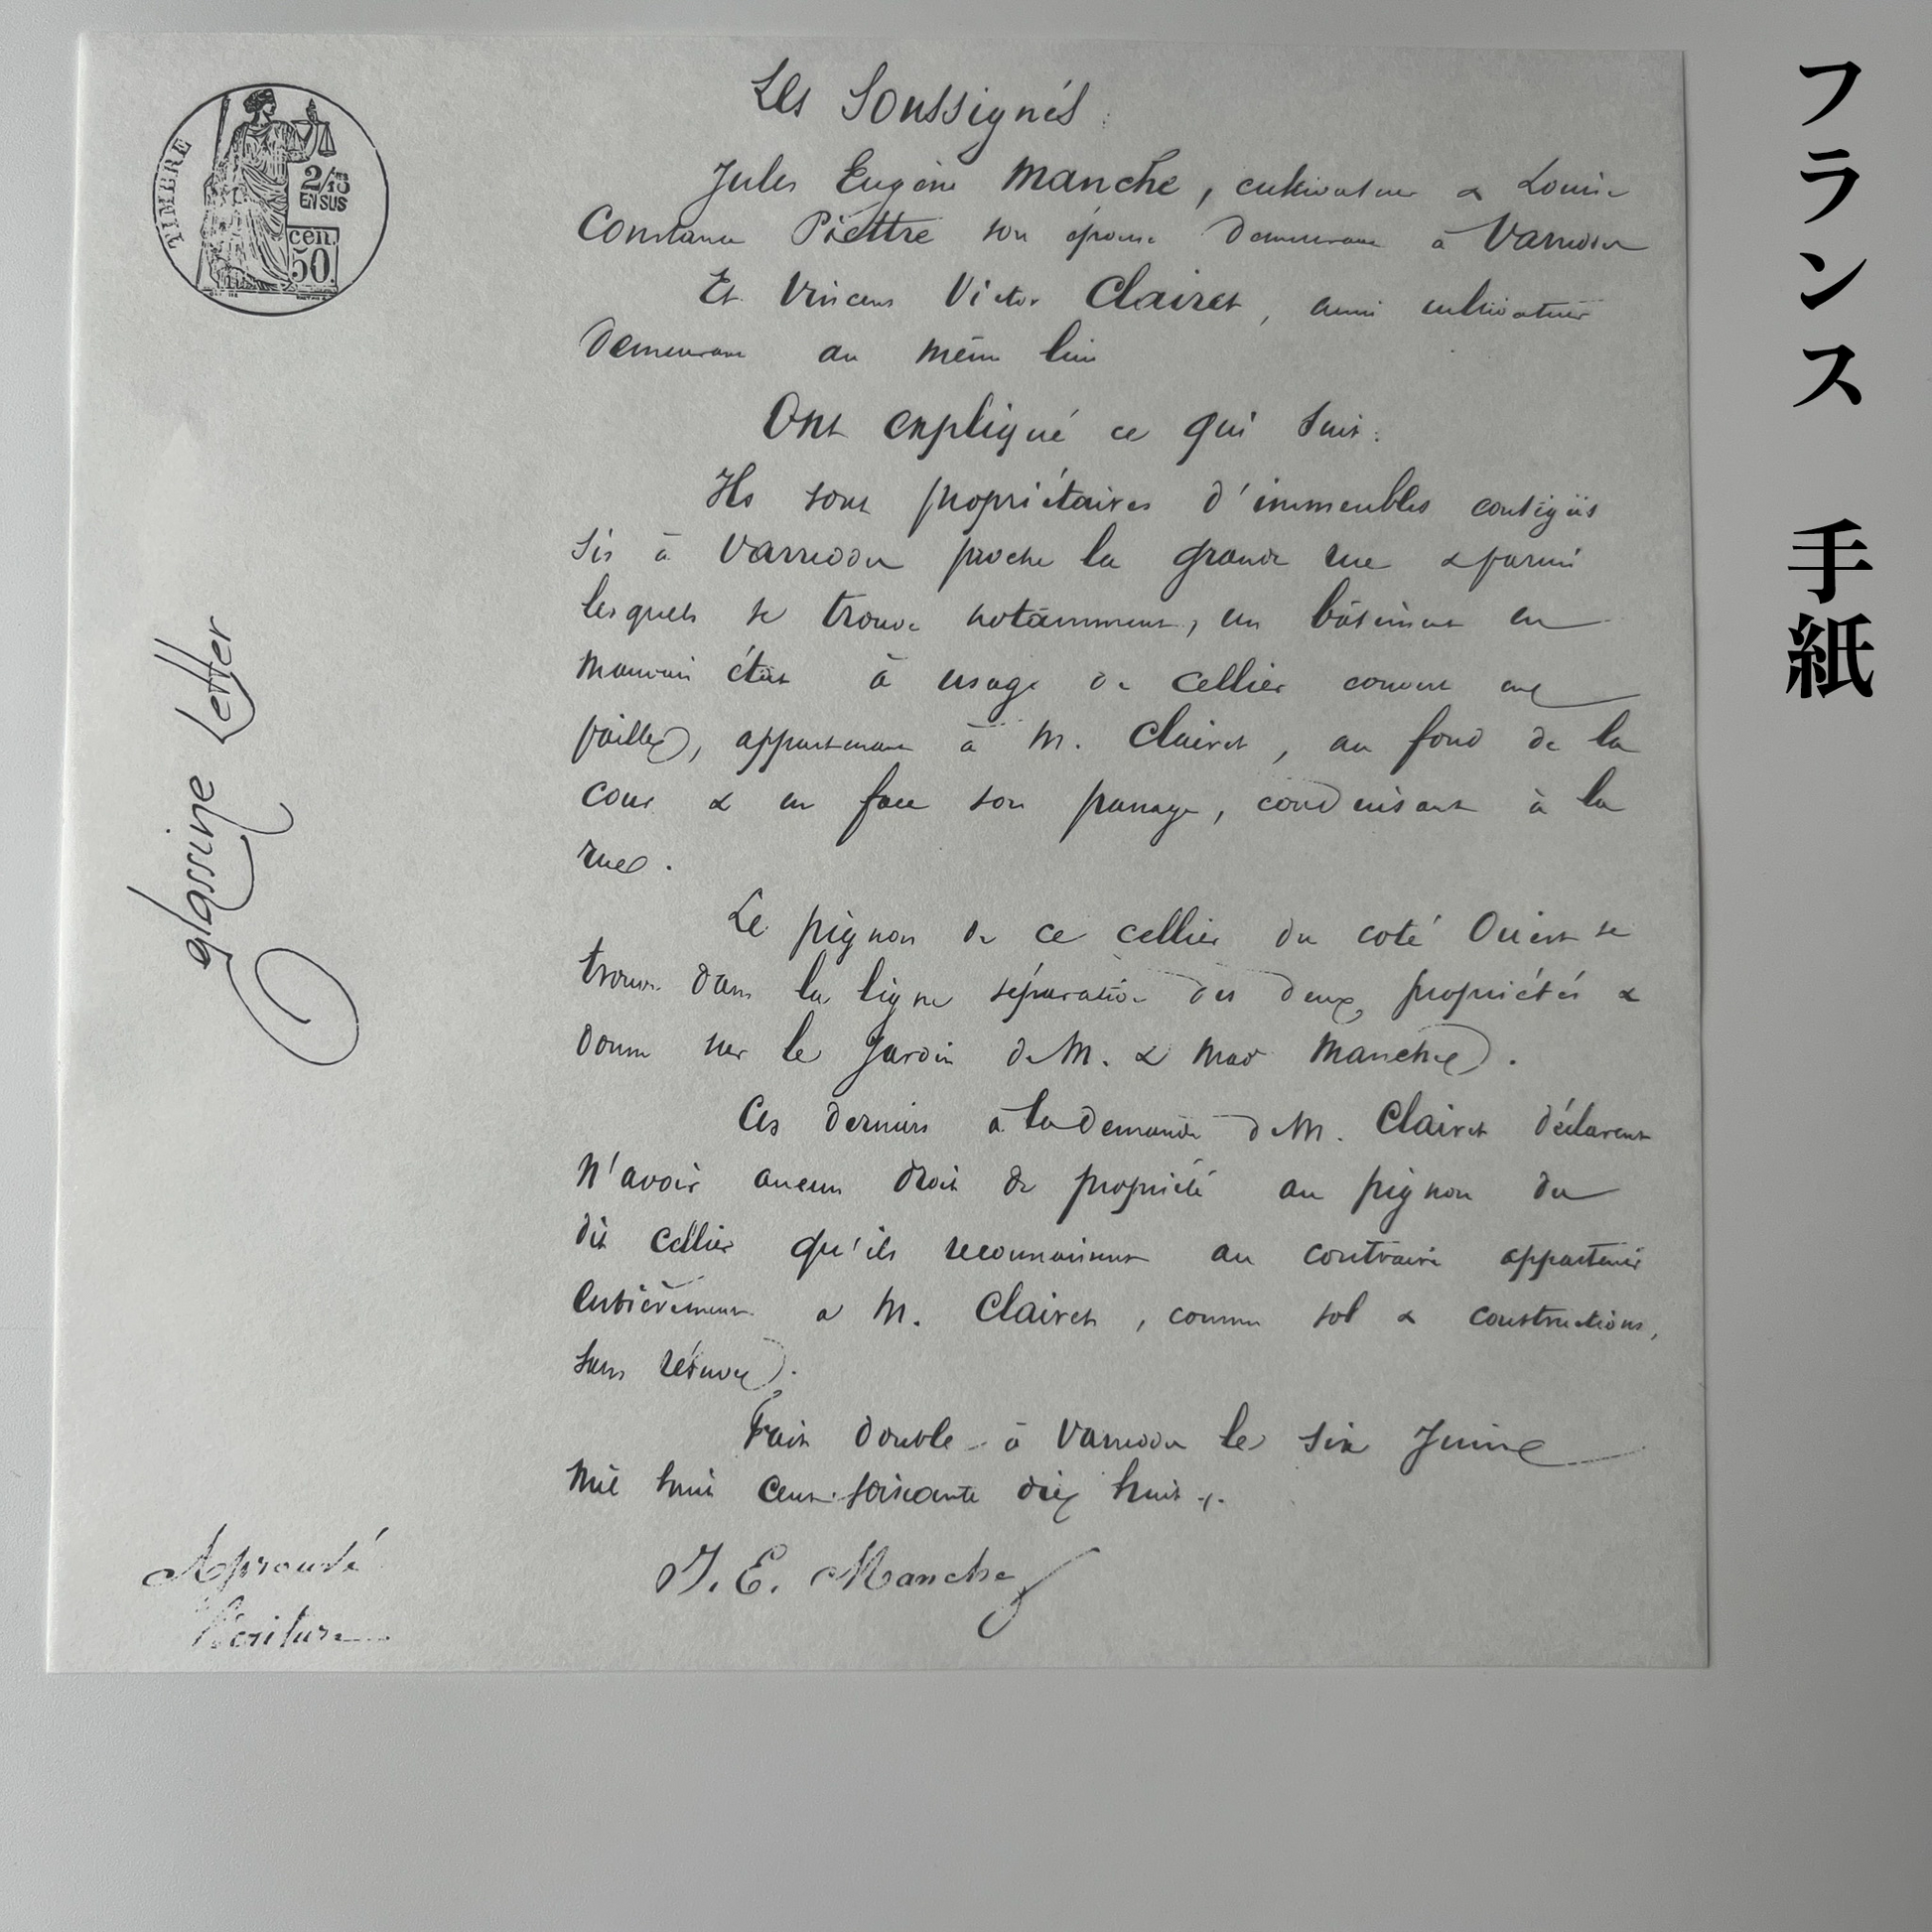 TIMBRE
2/10ms
EN SUS
cen.
50
Les Soussignés :
Jules Eugène Manche, cultivateur & Louise
Constance Piettre son épouse demeurant à Varredd
Et Vincent Victor Clairet, aussi cultivateur
demeurant au même lieu
Ont expliqué ce qui suit :
Ils sont propriétaires d'immeubles contigüs
sis à Varreddes proche la grande rue & parmi
lesquels se trouve notamment, un bâtiment en
mauvais état à usage de cellier couvert en
paille, appartenant à M. Clairet, au fond de la
cour & en face son passage, conduisant à la
rue.
Le pignon de ce cellier du coté Ouest se
trouve dans la ligne séparative des deux propriétés &
donne sur le Jardin de M. & Mad Manche.
Ces derniers à la demande de M. Clairet déclarent
n'avoir aucun droit de propriété au pignon du
dit cellier qu'ils reconnaissent au contraire appartenir
entièrement a M. Clairet, comme sol & constructions,
sans réserve.
Fait double à Varreddes le six Juin
mil huit cent soixante dix huit.
J. E. Manche
Aprouvé
l'écriture
glassine letter
フランス 手紙